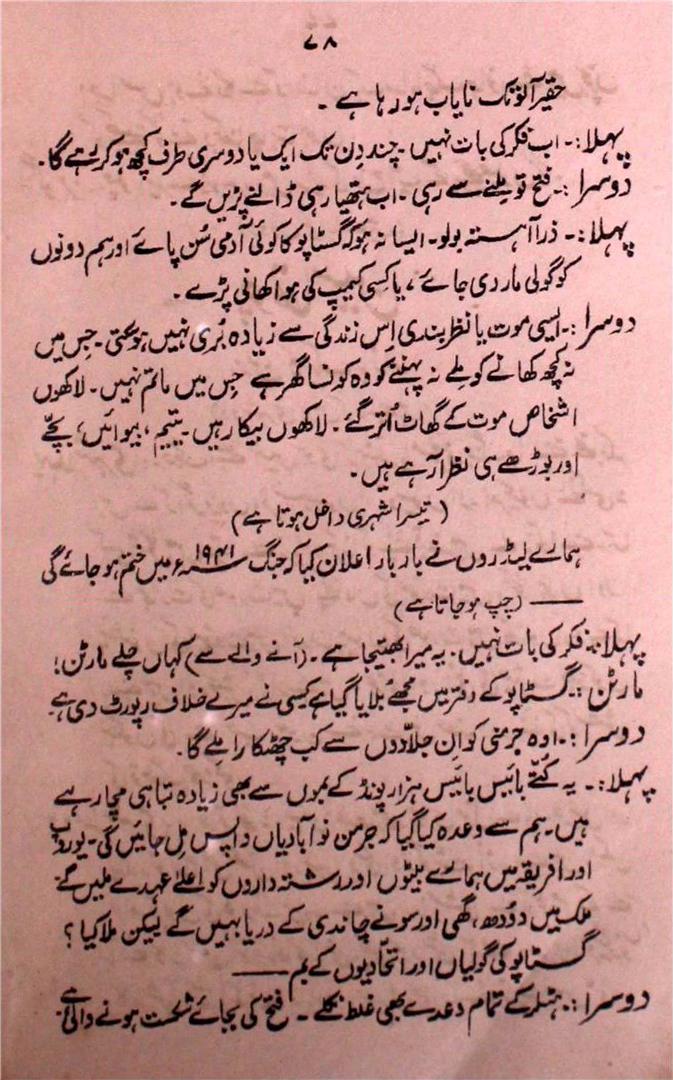 ۷۸
حقیر آلو تک نایاب ہو رہا ہے ۔
پہلا:۔ اب فکر کی بات نہیں ۔ چند دن تک ایک یا دوسری طرف کچھ ہو کر رہے گا۔
دوسرا :۔ فتح تو ملنے سے رہی ۔ اب ہتھیار ہی ڈالنے پڑیں گے ۔
پہلا:۔ ذرا آہستہ بولو۔ ایسا نہ ہو کہ گسٹاپو کا کوئی آدمی سُن پائے اور ہم دونوں
کو گولی مار دی جائے، یا کسی کیمپ کی ہوا کھانی پڑے ۔
دوسرا :۔ ایسی موت یا نظر بندی اِس زندگی سے زیادہ بُری نہیں ہو سکتی ۔ جس میں
نہ کچھ کھانے کو ملے نہ پہننے کو وہ کونسا گھر ہے جس میں ماتم نہیں ۔ لاکھوں
اشخاص موت کے گھاٹ اُتر گئے ۔ لاکھوں بیکار ہیں ۔ یتیم ، بیوائیں، بچّے
اور بوڑھے ہی نظر آ رہے ہیں ۔
(تیسرا شہری داخل ہوتا ہے)
ہمارے لیڈروں نے بار بار اعلان کیا کہ جنگ ۱۹۴۱ء میں ختم ہو جائے گی
—— (چپ ہو جاتا ہے)
پہلا:۔ فکر کی بات نہیں ۔ یہ میرا بھتیجا ہے ۔ (آنے والے سے) کہاں چلے مارٹن!
مارٹن :۔ گسٹاپو کے دفتر میں مجھے بلایا گیا ہے کسی نے میرے خلاف رپورٹ دی ہے
دوسرا :۔ اوہ جرمنی کو اِن جلّادوں سے کب چھٹکارا ملے گا۔
پہلا:۔ یہ کُتّے بائیس بائیس ہزار پونڈ کے بموں سے بھی زیادہ تباہی مچا رہے
ہیں ۔ ہم سے وعدہ کیا گیا کہ جرمن نو آبادیاں واپس مل جائیں گی ۔ یوروپ
اور افریقہ میں ہمارے بیٹوں اور رشتہ داروں کو اعلےٰ عہدے ملیں گے
ملک میں دُودھ، گھی اور سونے چاندی کے دریا بہیں گے لیکن ملا کیا ؟
گسٹاپو کی گولیاں اور اتحادیوں کے بم ——
دوسرا :۔ ہٹلر کے تمام وعدے بھی غلط نکلے ۔ فتح کی بجائے شکست ہونے والی ہے